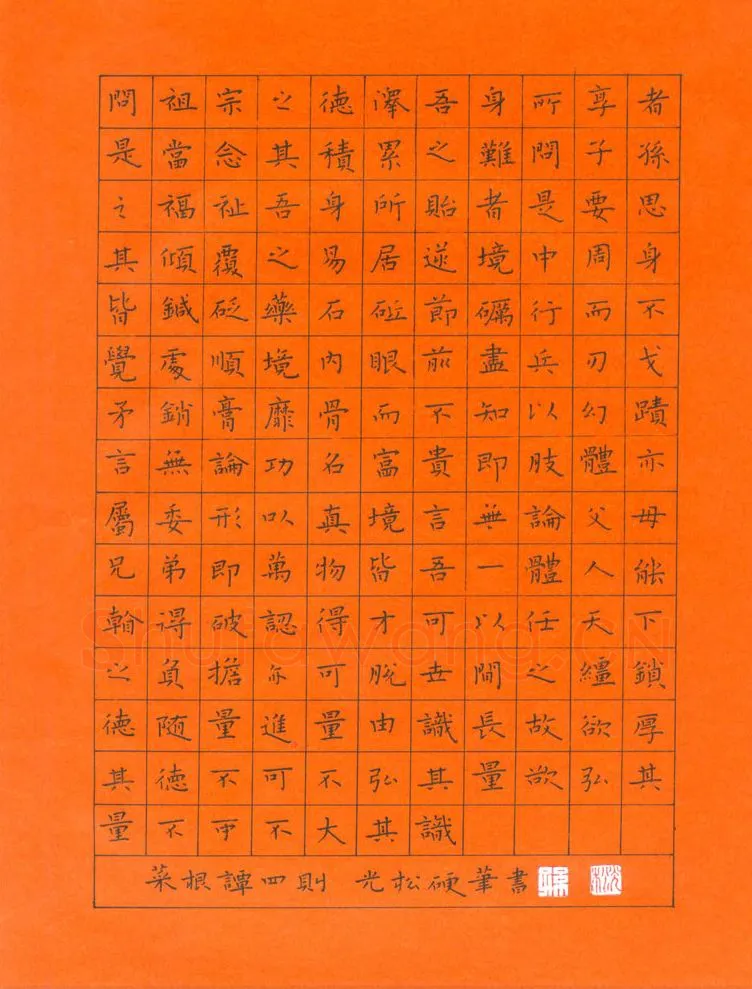 問祖宗之德澤吾身所享者
是當念其積累之難問子孫
之福祉吾身所貽者是要思
其傾覆之易居逆境中周身
皆鍼砭藥石砥節礪行而不
覺處順境內眼前盡兵刃戈
矛銷膏靡骨而不知以幻蹟
言無論功名富貴即肢體亦
屬委形以真境言無論父母
兄弟即萬物皆吾一體人能
得破認得才可以任天下
之負擔亦可脫世間之韁鎖
德随量進量由識長故欲厚
其德不可不弘其量欲弘其
量不可不大其識
菜根譚四則 光松硬筆書
ShufaWang.CN